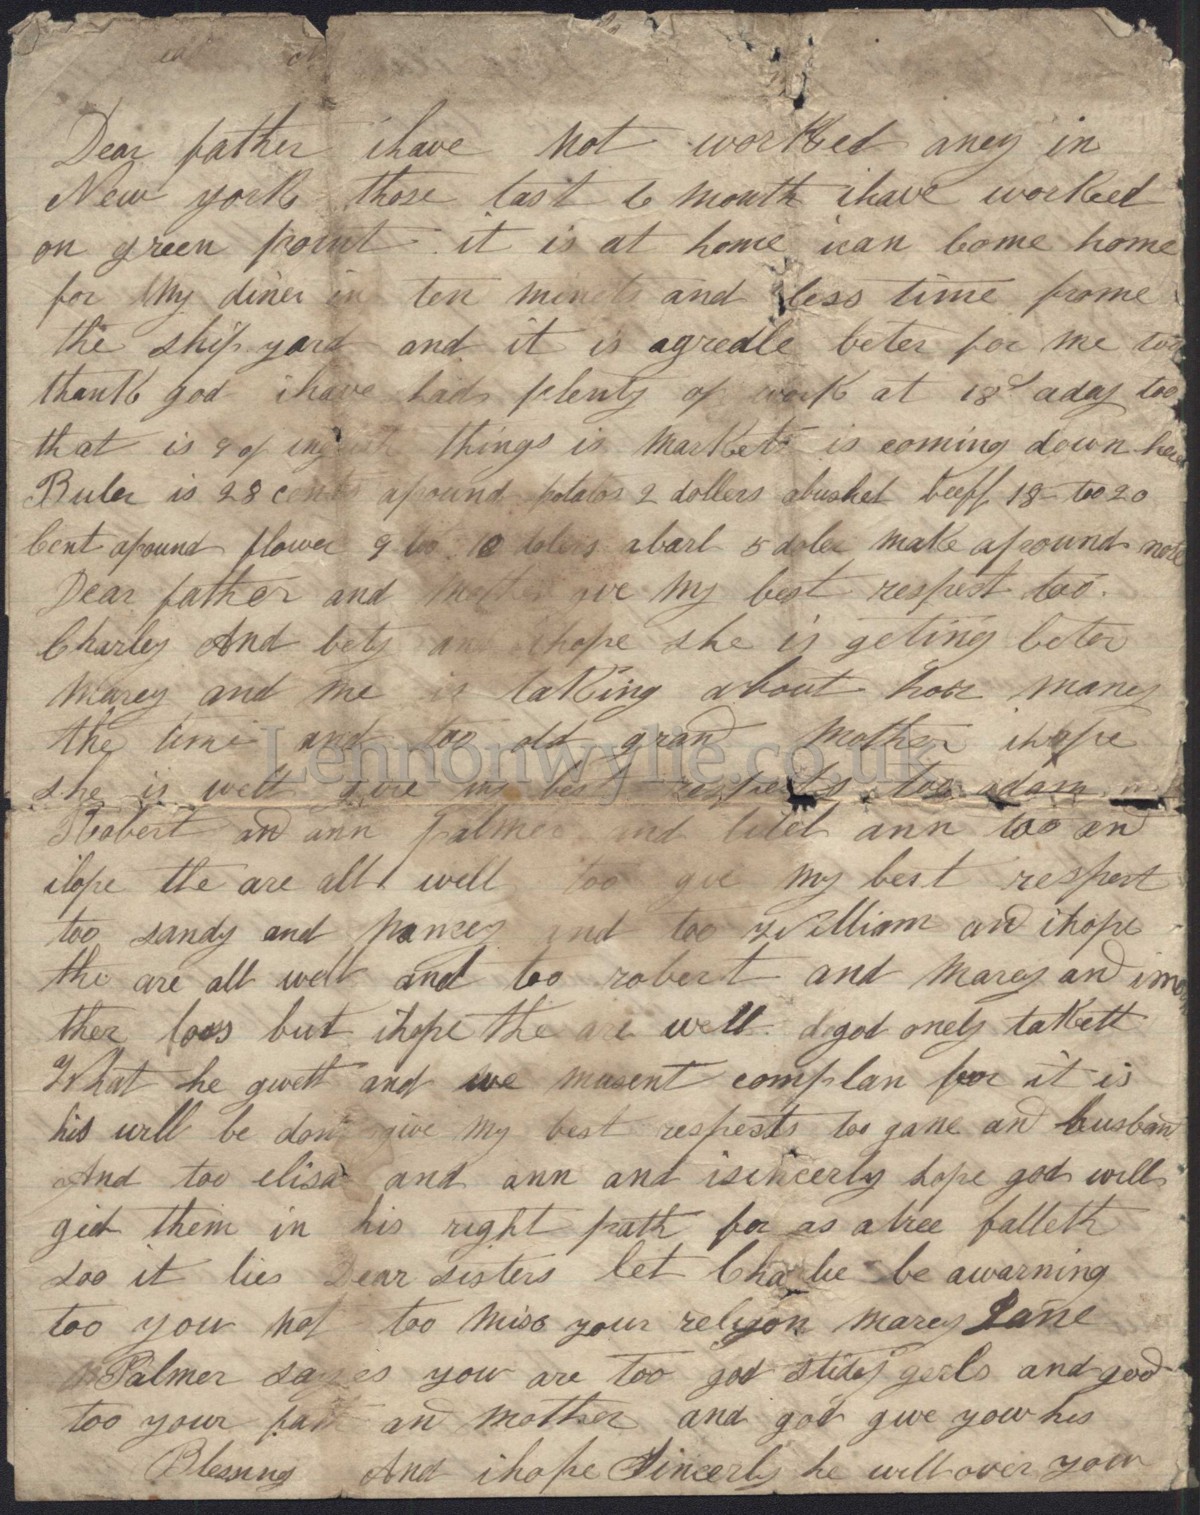 Dear father ihave not worked aney in
New york those last 6 month ihave worked
on green point it is at home ican come home
for my diner in ten minets and less time frome
the ship yard and it is agredle beter for me too
thank god ihave had plenty of work at 18 aday too
that is 9 of things is markets is coming down here
Buter is 28 cents apound potatos 2 dollers abushel beeff 18 too 20
cent apound flower 9 too 10 abarl 5 doler make apound note
Dear father and mother give my best respest too
Charley And bety and ihope she is geting beter
Marey and me is talking about hor maney
the time and too old grand mother ihope
she is well give my best respests too adam
Robert and ann palmer and litel ann too and
ihope the are all well too give my best respest
too sandy and nancey and too William and ihope
the are all well and too robert and marey and
ther loss but ihope the are well god onely taketh
What he gweth and we musent complan for it is
his will be done give my best respests too gane and husband
And too elisa and ann and isincerly hope god will
gid them in his right path for as atree falleth
soo it lies Dear sisters let be awarning
too you not too miss your religon marey Jane
Palmer sayes you are too god gerls and good
too your and mother and god give you his
Blessing And ihope Sincerly he will over you
Lennonwylie.co.uk